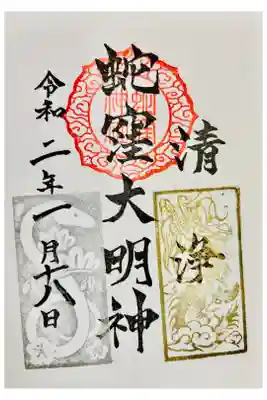 清浄
蛇窪大明神
令和二年一月十六日